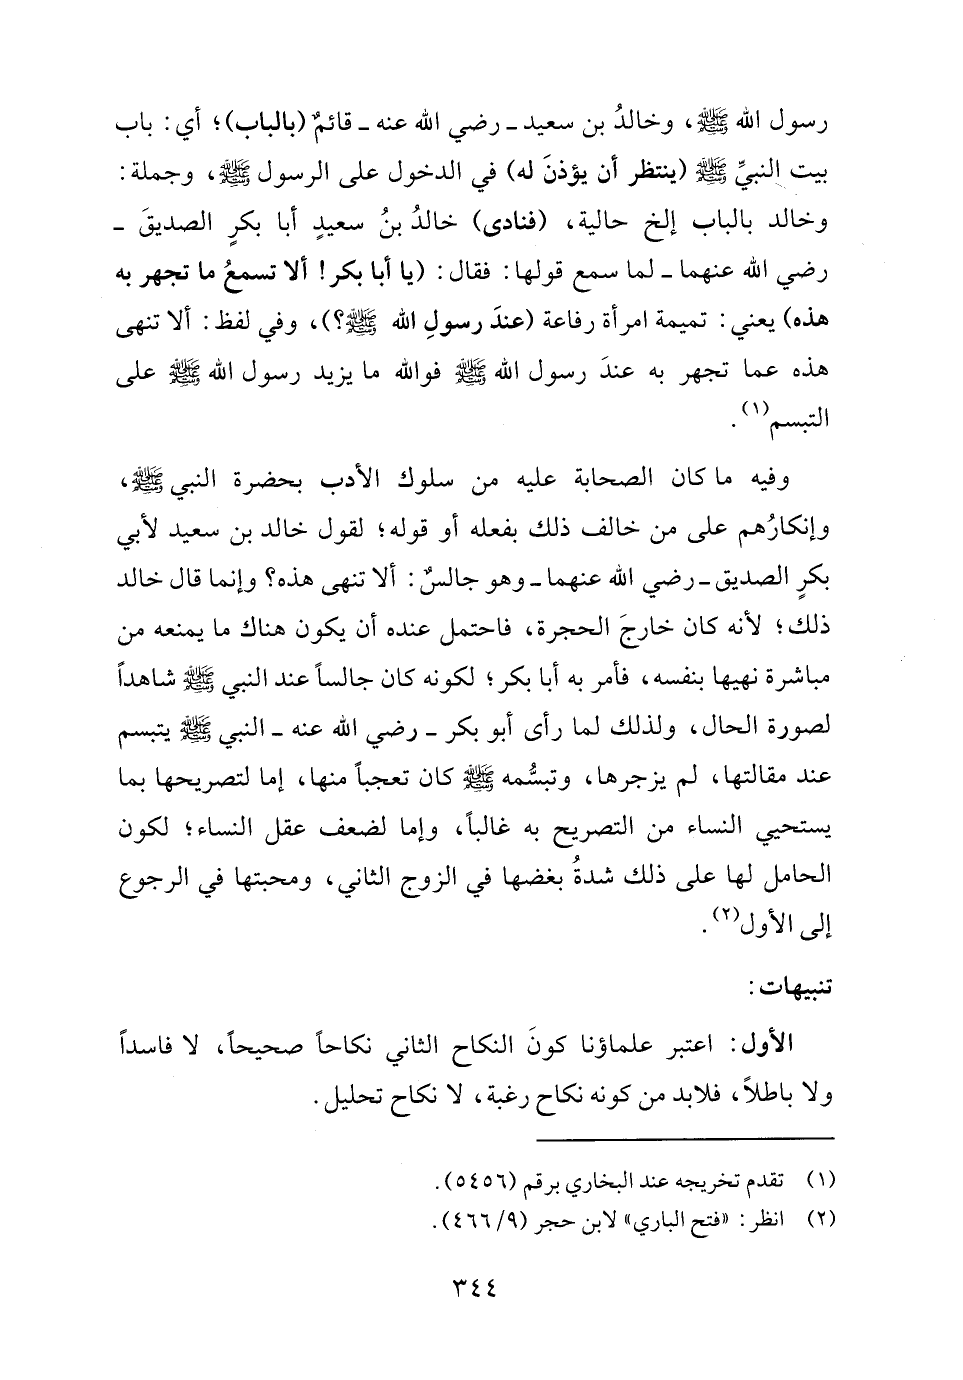 رسول الله ﷺ، وخالدُ بن سعيد ـ رضي الله عنه ـ قائمٌ (بالباب)؛ أي: باب
بيت النبيِّ ﷺ (ينتظر أن يؤذنَ له) في الدخول على الرسول ﷺ، وجملة:
وخالد بالباب إلخ حالية، (فنادى) خالدُ بنُ سعيدٍ أبا بكرٍ الصديقَ ـ
رضي الله عنهما ـ لما سمع قولها: فقال: (يا أبا بكر! ألا تسمعُ ما تجهر به
هذه) يعني: تميمة امرأة رفاعة (عندَ رسولِ الله ﷺ؟)، وفي لفظ: ألا تنهى
هذه عما تجهر به عندَ رسول الله ﷺ فوالله ما يزيد رسول الله ﷺ على
التبسم(١).
وفيه ما كان الصحابة عليه من سلوك الأدب بحضرة النبي ﷺ،
وإنكارُهم على من خالف ذلك بفعله أو قوله؛ لقول خالد بن سعيد لأبي
بكرٍ الصديق ـ رضي الله عنهما ـ وهو جالسٌ: ألا تنهى هذه؟ وإنما قال خالد
ذلك؛ لأنه كان خارجَ الحجرة، فاحتمل عنده أن يكون هناك ما يمنعه من
مباشرة نهيها بنفسه، فأمر به أبا بكر؛ لكونه كان جالساً عند النبي ﷺ شاهداً
لصورة الحال، ولذلك لما رأى أبو بكر ـ رضي الله عنه ـ النبي ﷺ يتبسم
عند مقالتها، لم يزجرها، وتبسُّمه ﷺ كان تعجباً منها، إما لتصريحها بما
يستحيي النساء من التصريح به غالباً، وإما لضعف عقل النساء؛ لكون
الحامل لها على ذلك شدةُ بغضها في الزوج الثاني، ومحبتها في الرجوع
إلى الأول(٢).
تنبيهات:
الأول: اعتبر علماؤنا كونَ النكاح الثاني نكاحاً صحيحاً، لا فاسداً
ولا باطلاً، فلابد من كونه نكاح رغبة، لا نكاح تحليل.
(١) تقدم تخريجه عند البخاري برقم (٥٤٥٦).
(٢) انظر: «فتح الباري» لابن حجر (٩/ ٤٦٦).
٣٤٤